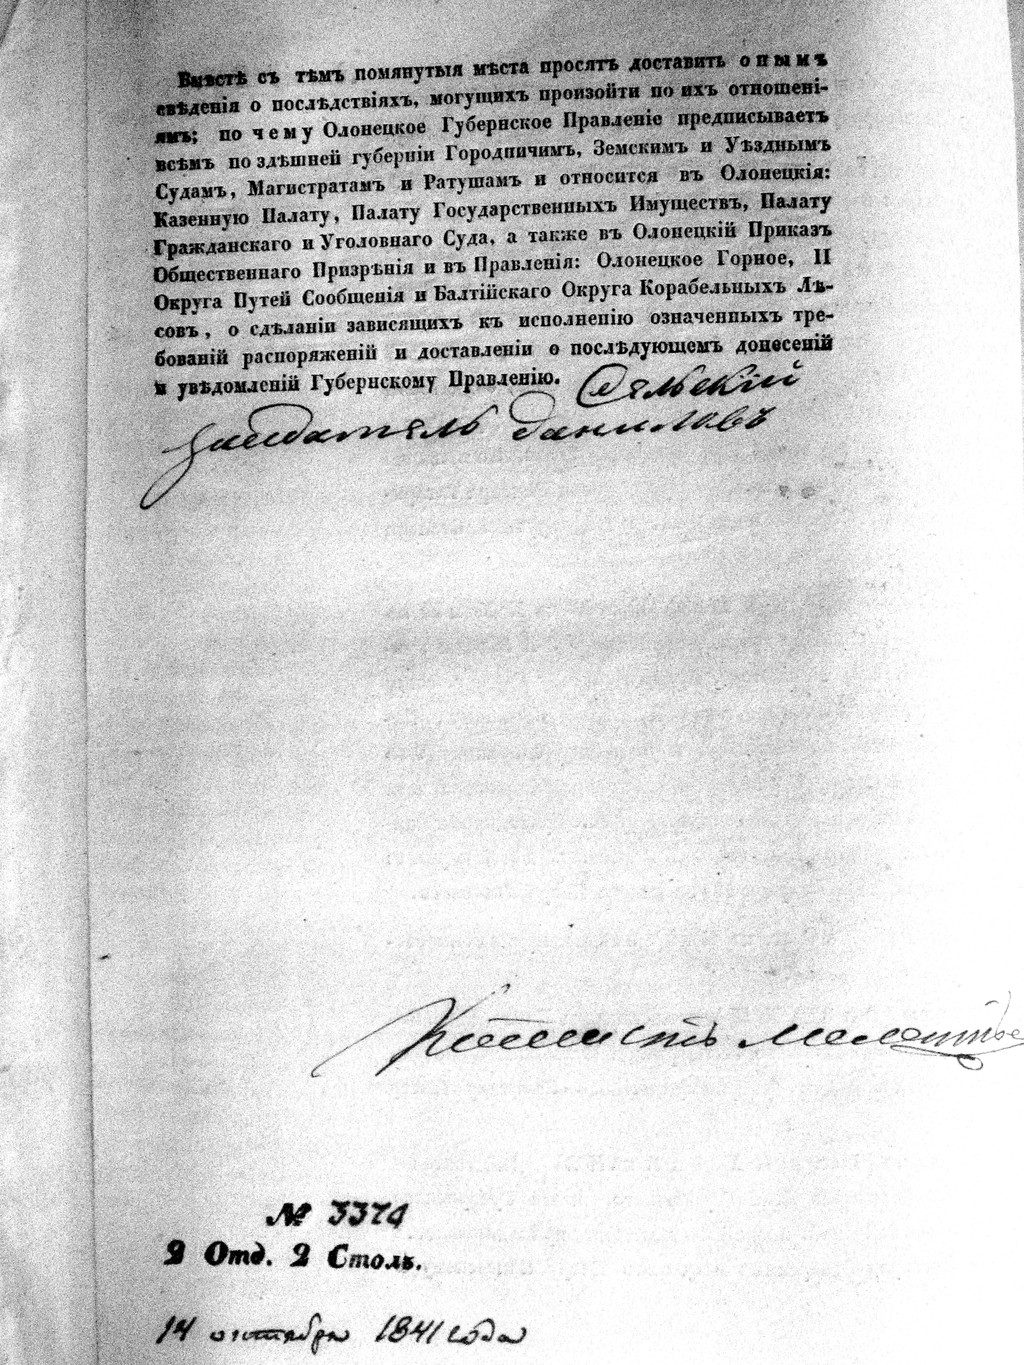 Вмѣстѣ съ тѣмъ помянутыя мѣста просятъ доставить онымъ
свѣденія о послѣдствіяхъ, могущихъ произойти по ихъ отношені-
ямъ; по чему Олонецкое Губернское Правленіе предписываетъ
всѣмъ по здѣшней губерніи Городничимъ, Земскимъ и Уѣзднымъ
Судамъ, Магистратамъ и Ратушамъ и относится въ Олонецкія:
Казенную Палату, Палату Государственныхъ Имуществъ, Палату
Гражданскаго и Уголовнаго Суда, а также въ Олонецкій Приказъ
Общественнаго Призрѣнія и въ Правленія: Олонецкое Горное, II
Округа Путей Сообщенія и Балтійскаго Округа Корабельныхъ Лѣ-
совъ, о сдѣланіи зависящихъ къ исполненію означенныхъ тре-
бованій распоряженій и доставленіи о послѣдующемъ донесеній
и увѣдомленій Губернскому Правленію. Сельскій
засѣдатель Даниловъ
Копіистъ
№ 3374
2 Отд. 2 Столъ.
14 октября 1841 года